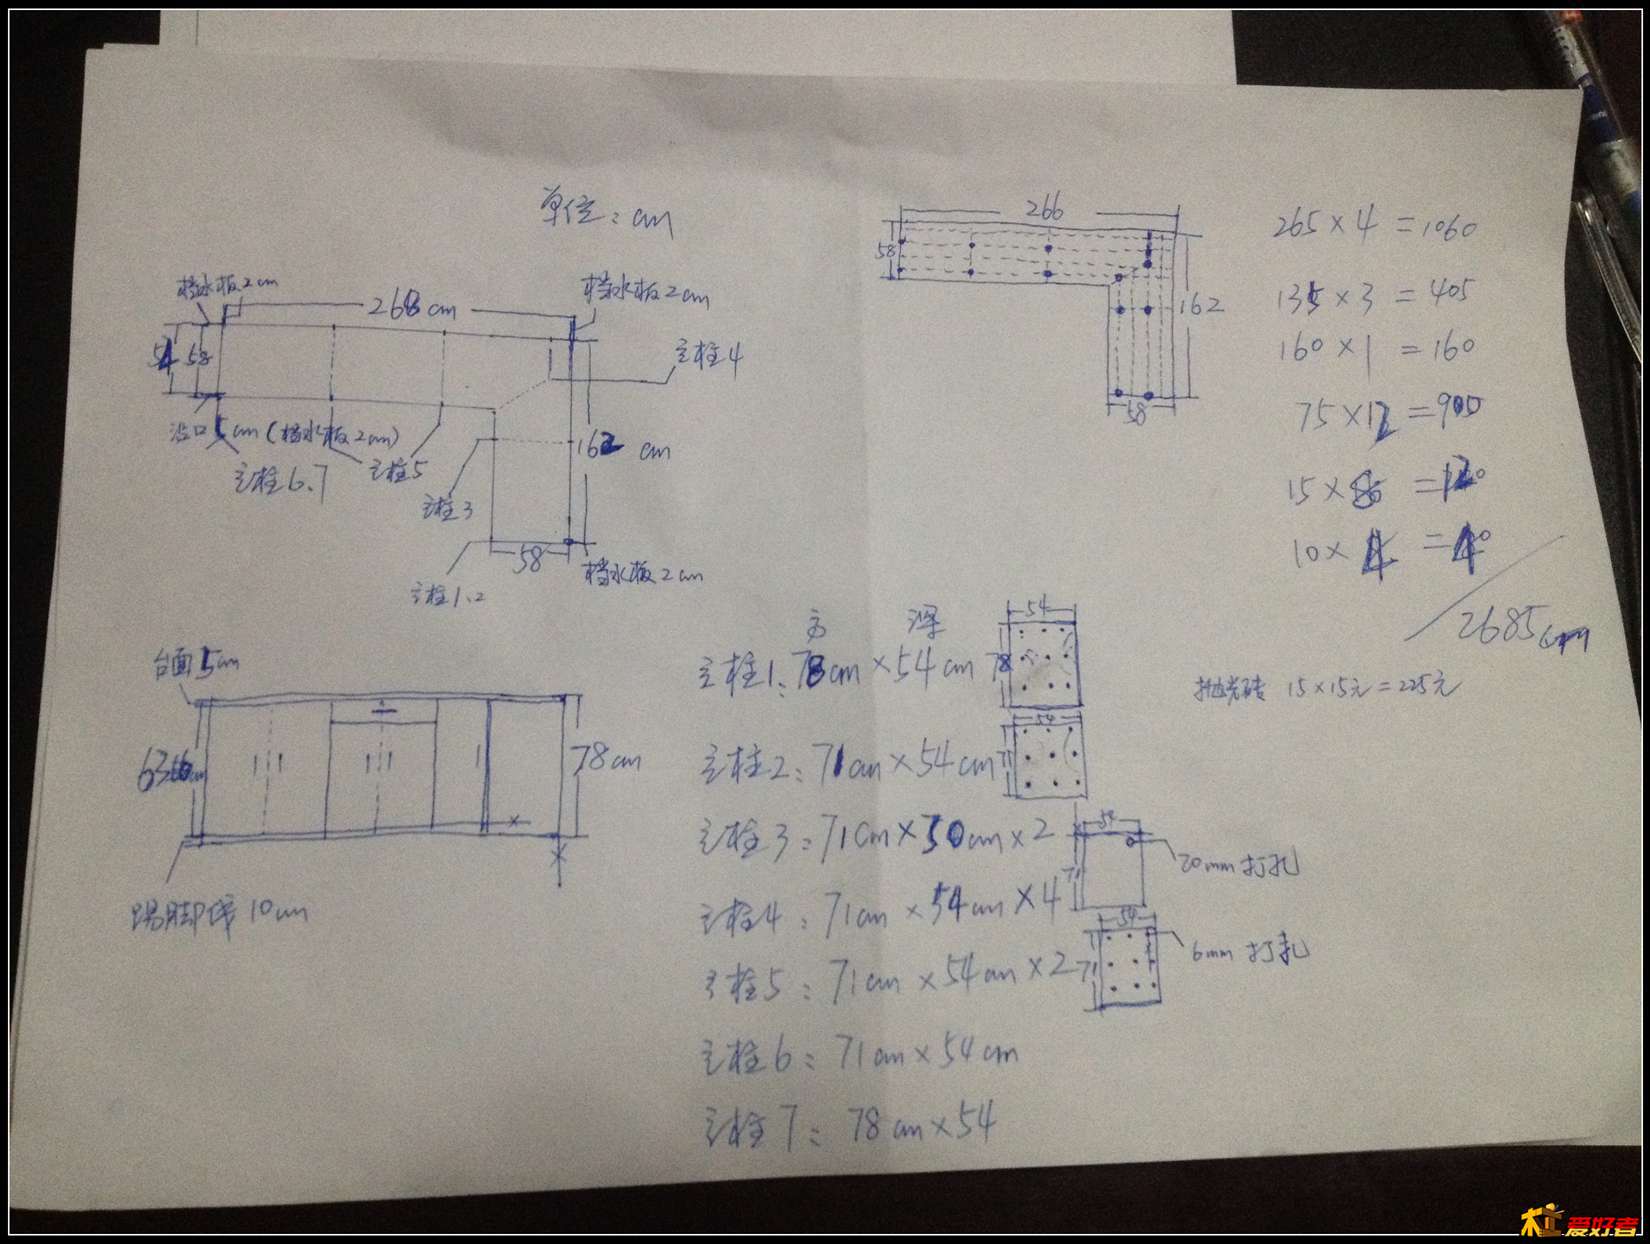 单位：cm
档水板2cm
268cm
档水板2cm
54
58
立柱4
沿口5cm(档水板2cm)
立柱6.7
立柱5
162 cm
立柱3
58
档水板2cm
立柱1.2
266
58
162
58
265×4=1060
135×3=405
160×1=160
75×12=900
15×8=120
10×4=40
2685cm
抛光砖 15×15元=225元
台面5cm
78cm
踢脚线10cm
高 深
立柱1：78cm×54cm
54
78
立柱2：71cm×54cm
54
71
立柱3：71cm×50cm×2
54
71
20mm打孔
立柱4：71cm×54cm×4
54
71
6mm打孔
立柱5：71cm×54cm×2
立柱6：71cm×54cm
立柱7：78cm×54
木工爱好者